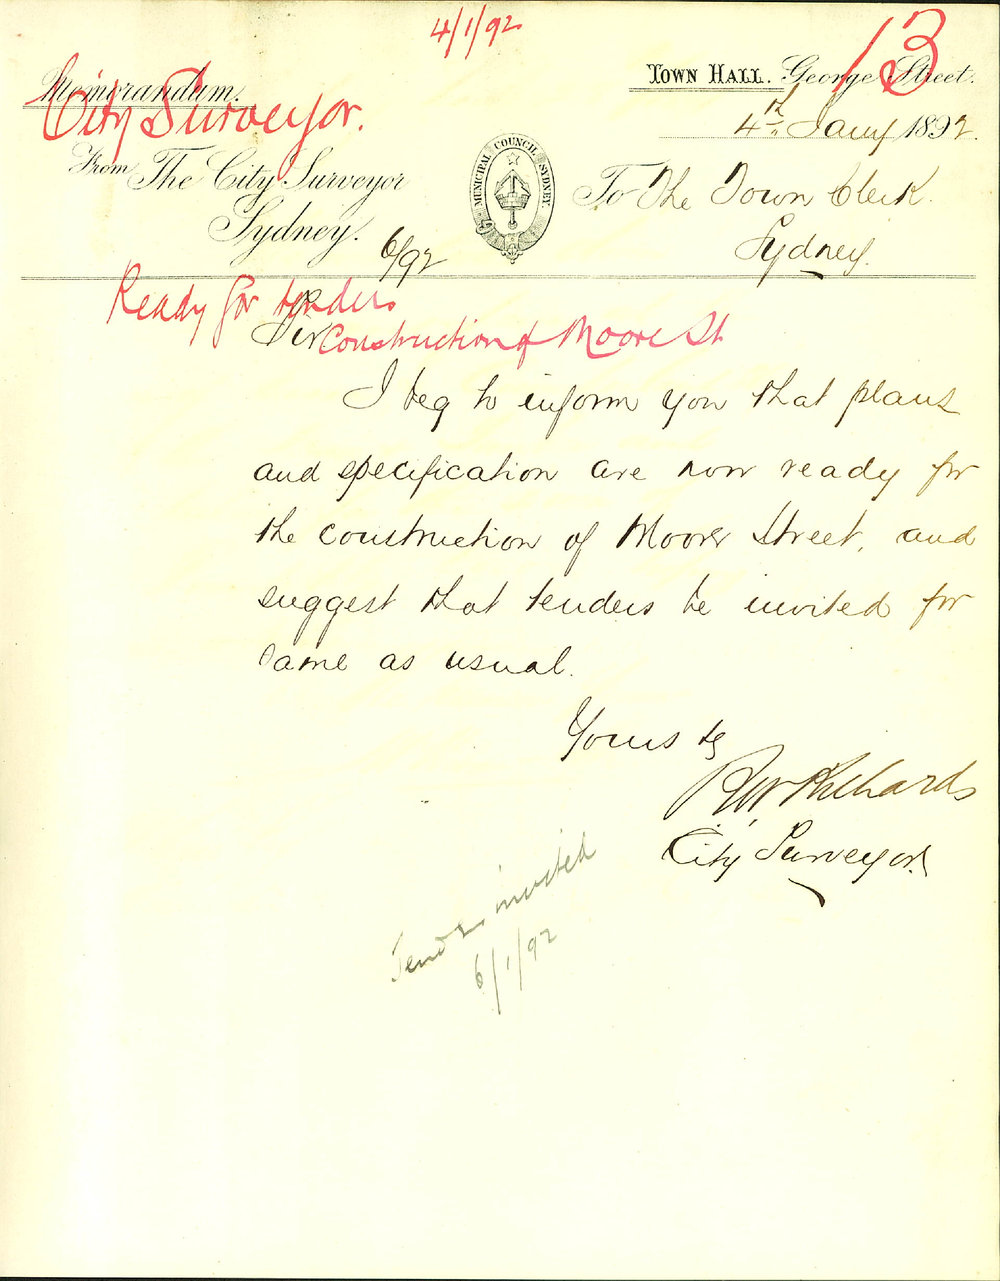 4/1/92
13
Memorandum.
TOWN HALL. George Street.
City Surveyor.
4th Jany 1892.
From The City Surveyor
Sydney.
MUNICIPAL COUNCIL SYDNEY.
To The Town Clerk.
Sydney.
6/92
Ready for tenders
Construction of Moore St
Sir
I beg to inform you that plans
and specification are now ready for
the construction of Moore Street, and
suggest that tenders be invited for
same as usual.
Yours &c
RW Richards
City Surveyor.
Tenders invited
6/1/92